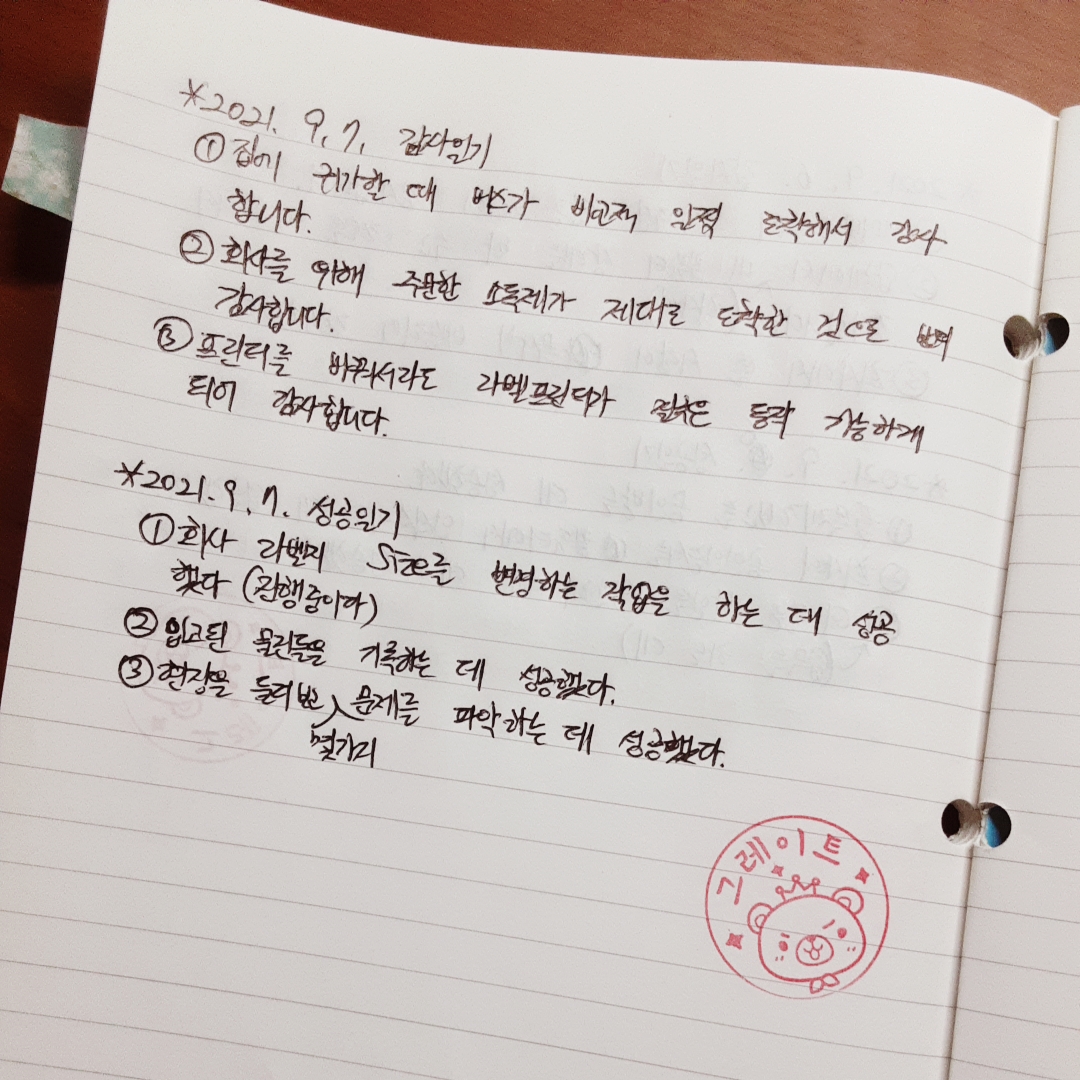 *2021. 9. 7. 감사일기
① 집에 귀가할 때 버스가 비교적 일찍 도착해서 감사
합니다.
② 회사를 위해 주문한 소독제가 제대로 도착한 것으로 판명
감사합니다.
③ 프린터를 바꿔서라도 라벨프린터가 잘은 동작 가능하게
되어 감사합니다.
*2021. 9. 7. 성공일기
① 회사 라벤지 size를 변경하는 작업을 하는 데 성공
했다 (진행중이다)
② 입고된 물건들을 기록하는 데 성공했다.
③ 현장을 둘러보고 몇가지 문제를 파악하는 데 성공했다.
그레이트